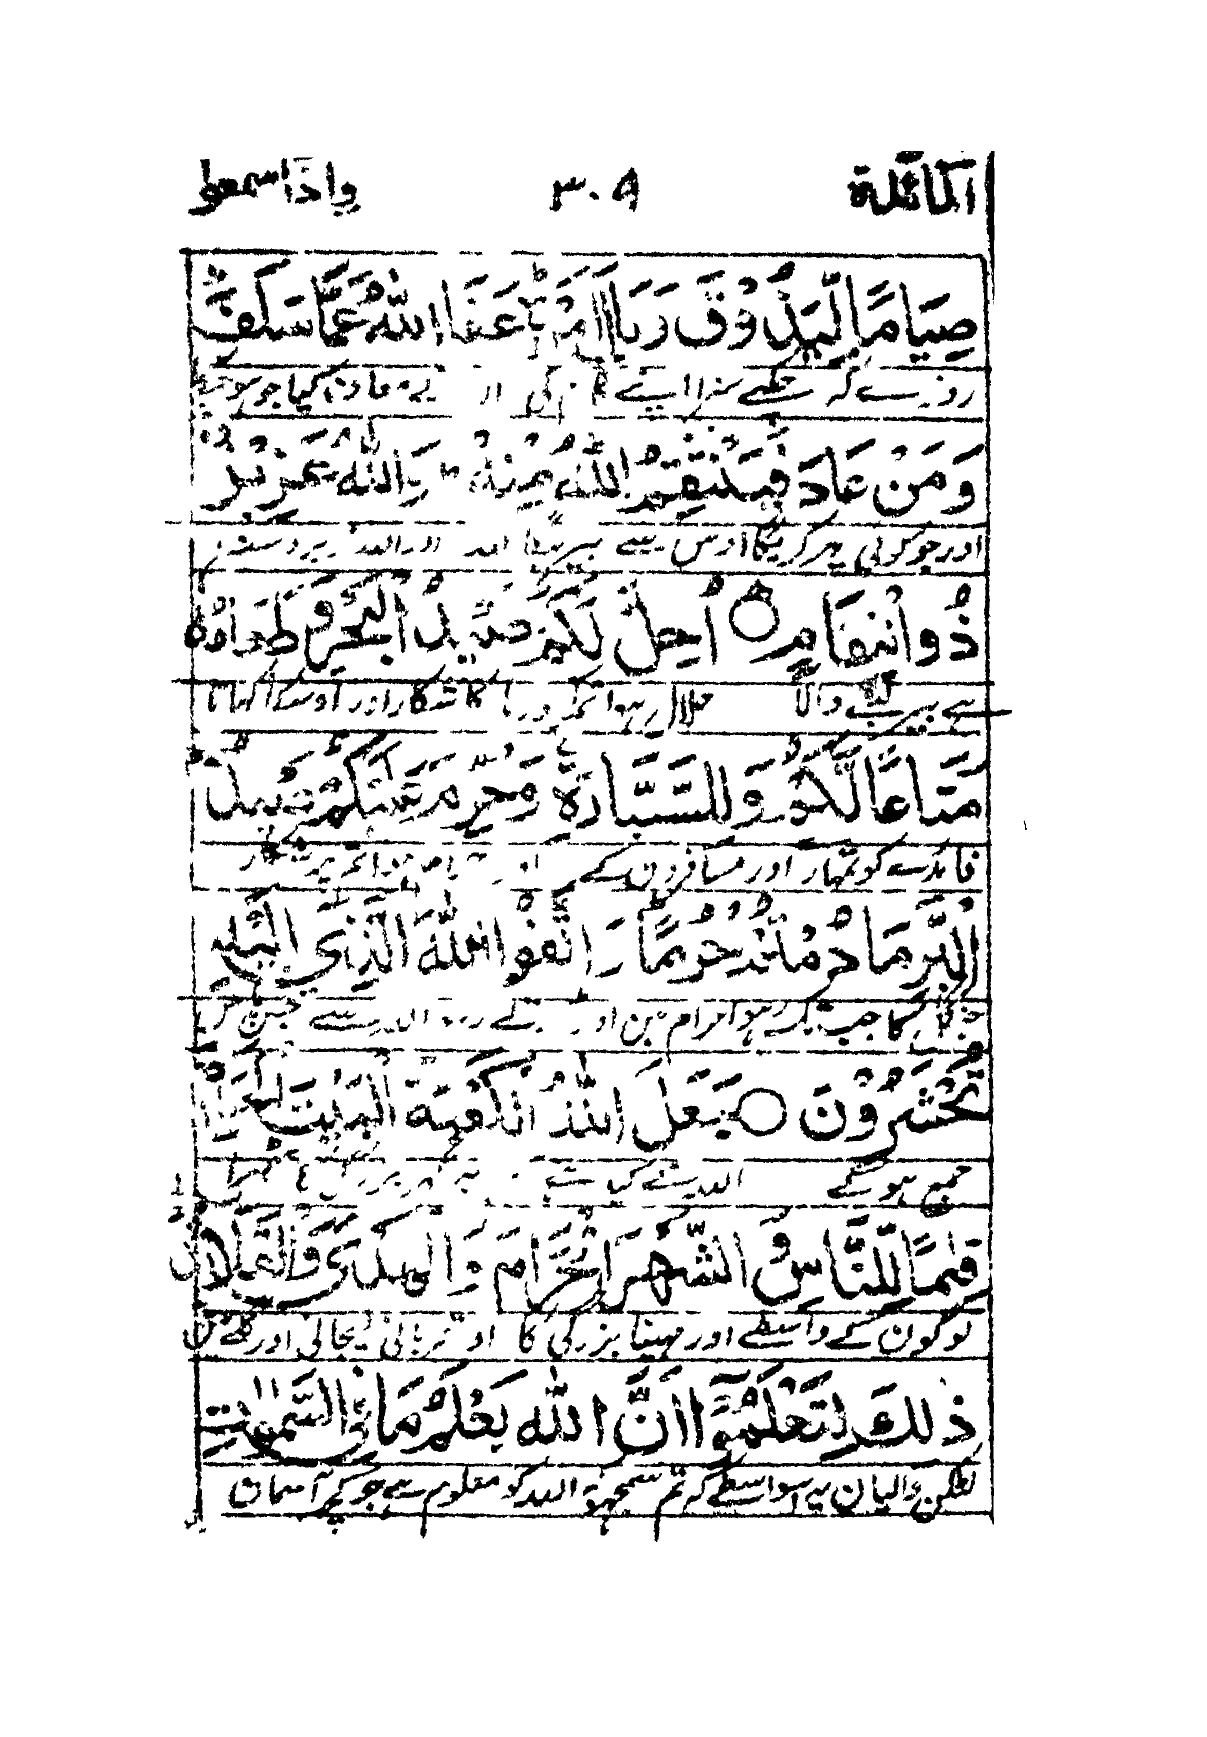 المائدة ٣٠٩ واذا سمعوا
صِيَامًا لِّيَذُوْقَ وَبَالَ اَمْرِهٖ عَفَا اللّٰهُ عَمَّا سَلَفَ
روزے کہ چکھے سزا اپنے کام کی اللہ نے معاف کیا جو ہوچکا
وَمَنْ عَادَ فَيَنْتَقِمُ اللّٰهُ مِنْهُ وَاللّٰهُ عَزِيْزٌ
اور جو کوئی پھر کریگا اوس سے بیر لیگا اللہ اور اللہ زبردست
ذُو انْتِقَامٍ ○ اُحِلَّ لَكُمْ صَيْدُ الْبَحْرِ وَطَعَامُهٗ
ہے بیر لینے والا حلال ہوا تمکو دریا کا شکار اور اوسکا کھانا
مَتَاعًا لَّكُمْ وَلِلسَّيَّارَةِ وَحُرِّمَ عَلَيْكُمْ صَيْدُ
فائدے کو تمہارے اور مسافروں کے اور حرام ہوا تم پر شکار
الْبَرِّ مَا دُمْتُمْ حُرُمًا وَاتَّقُوا اللّٰهَ الَّذِيْ اِلَيْهِ
جنگل کا جب تک رہو احرام میں اور ڈرتے رہو اللہ سے جس پاس
تُحْشَرُوْنَ ○ جَعَلَ اللّٰهُ الْكَعْبَةَ الْبَيْتَ الْحَرَامَ
جمع ہوگے اللہ نے کیا ہے کعبہ گھر بزرگی کا
قِيٰمًا لِّلنَّاسِ وَالشَّهْرَ الْحَرَامَ وَالْهَدْىَ وَالْقَلَآئِدَ
لوگون کے واسطے اور مہینا بزرگی کا اور قربانی لیجانی اور گلے میں
ذٰلِكَ لِتَعْلَمُوْٓا اَنَّ اللّٰهَ يَعْلَمُ مَا فِى السَّمٰوٰتِ
لٹکن والیان یہ اسواسطے کہ تم سمجھو اللہ کو معلوم ہے جو کچھ آسمان